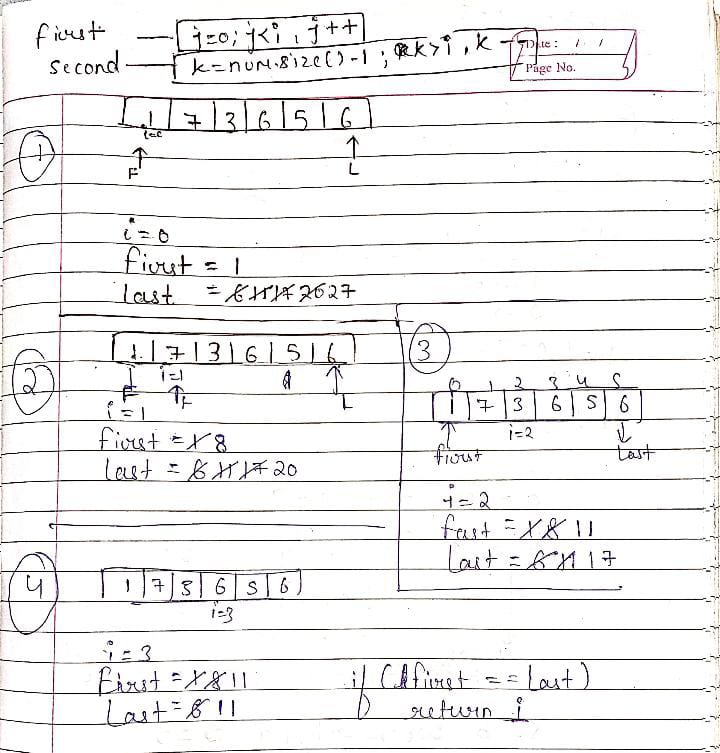 first — j=0; j<i, j++
second — k=num.size()-1; k>i, k-
Date: / /
Page No.
①
1 7 3 6 5 6
i=0
F L
i=0
first = 1
last = 6 11 17 20 27
②
1 7 3 6 5 6
i=1
F F L
i=1
first = 1 8
last = 6 11 17 20
③
0 1 2 3 4 5
1 7 3 6 5 6
i=2
first last
i=2
fast = 1 8 11
last = 6 11 17
4
1 7 3 6 5 6
i=3
i=3
First = 1 8 11
Last = 6 11
if (first == last)
return i